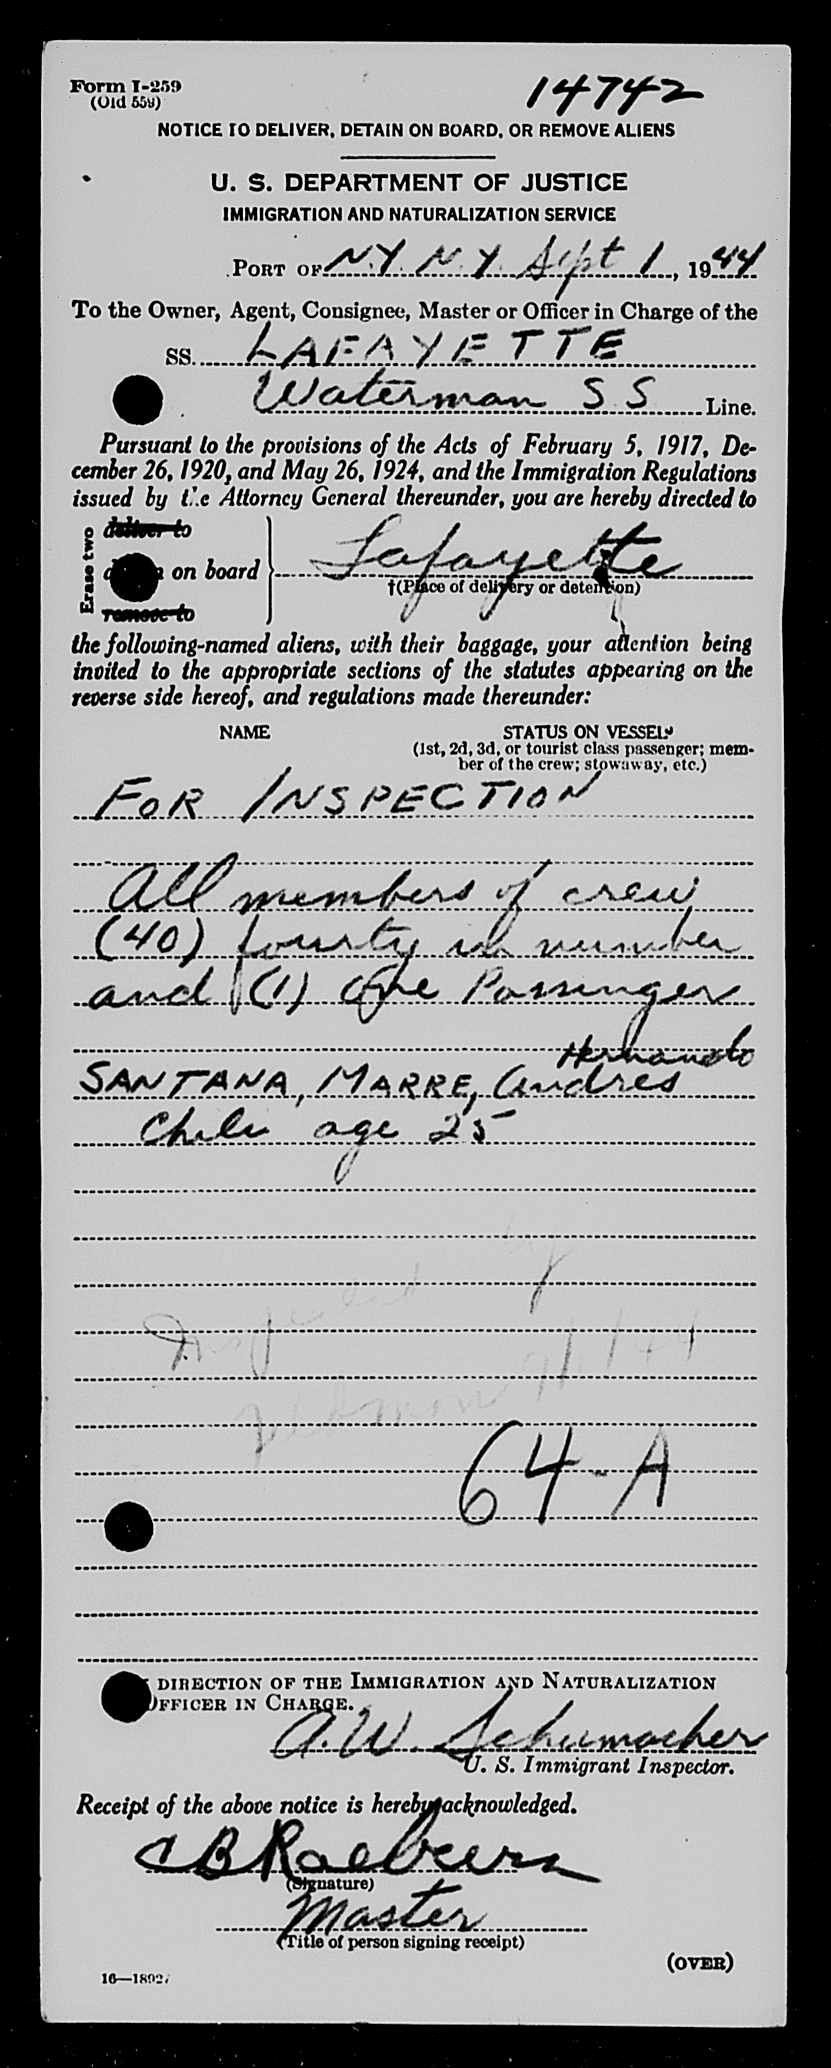 Form I-259
(Old 559)
14742
NOTICE TO DELIVER, DETAIN ON BOARD, OR REMOVE ALIENS
U. S. DEPARTMENT OF JUSTICE
IMMIGRATION AND NATURALIZATION SERVICE
PORT OF N.Y. N.Y. Sept 1, 1944
To the Owner, Agent, Consignee, Master or Officer in Charge of the
SS. LAFAYETTE
Waterman S S Line.
Pursuant to the provisions of the Acts of February 5, 1917, De-
cember 26, 1920, and May 26, 1924, and the Immigration Regulations
issued by the Attorney General thereunder, you are hereby directed to
Erase two
deliver to
on board Lafayette
†(Place of delivery or detention)
remove to
the following-named aliens, with their baggage, your attention being
invited to the appropriate sections of the statutes appearing on the
reverse side hereof, and regulations made thereunder:
NAME STATUS ON VESSEL
(1st, 2d, 3d, or tourist class passenger; mem-
ber of the crew; stowaway, etc.)
FOR INSPECTION
All members of crew
(40) fourty in number
and (1) One Passenger
Hernando
SANTANA, MARRE, Andres
Chile age 25
Inspected by
9/1/44
64-A
DIRECTION OF THE IMMIGRATION AND NATURALIZATION
OFFICER IN CHARGE.
A.W. Schumacher
U. S. Immigrant Inspector.
Receipt of the above notice is hereby acknowledged.
(Signature)
Master
(Title of person signing receipt)
(OVER)
16—18927